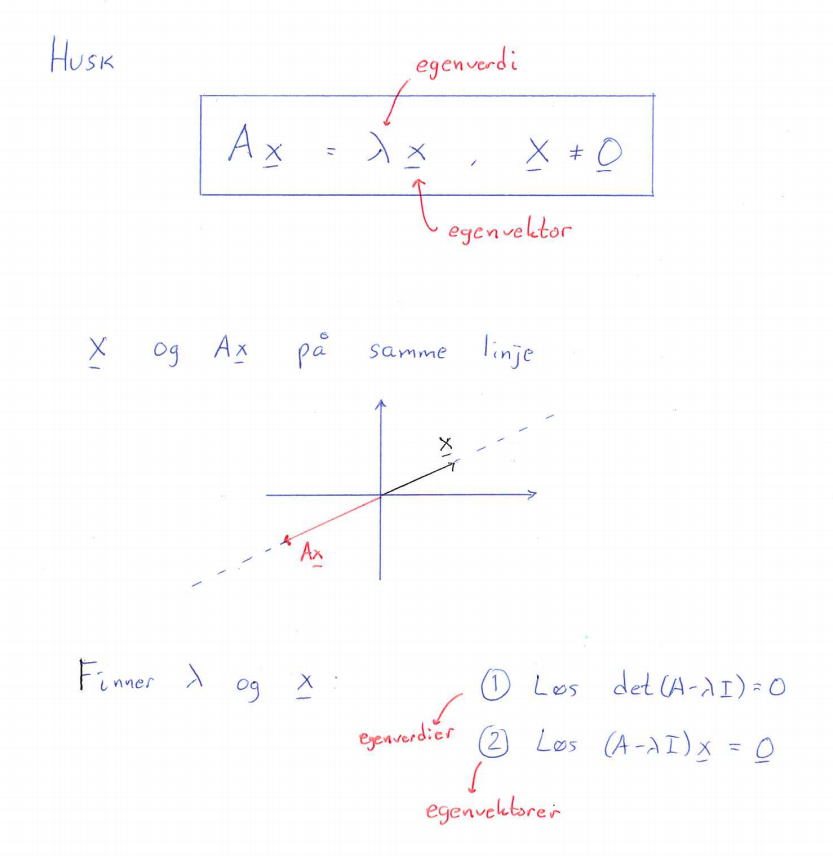 Husk
egenverdi
Ax = λx , x ≠ 0
egenvektor
x og Ax på samme linje
x
Ax
Finner λ og x :
① Løs det(A-λI)=0
egenverdier
② Løs (A-λI)x = 0
egenvektorer